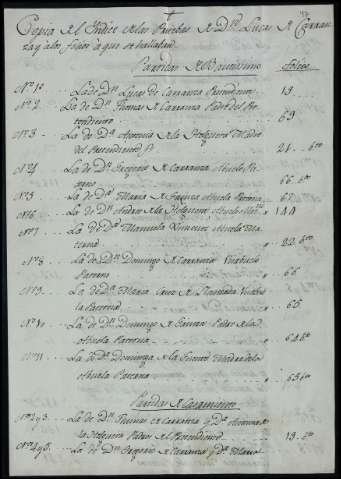 Copia del Indice de las Pruebas de Dn. Lucas de Carran
za y a los folios a que se hallaban
Partidas de Bautismo folios
No. 1o La de Dn. Lucas de Carranza Pretendiente 13
No. 2 La de Dn. Thomas de Carranza Padre del Pre
tendiente 63
No. 3 La de Da. Antonia de la Madre
del Pretendiente 21 bto
No. 4 La de Dn. Gregorio de Carranza Abuelo Pa
terno 66 bto
No. 5 La de Da. Maria de Abuela Paterna 67
No. 6 La de Dn. Andres de la Abuelo Mat.no 144
No. 7 La de Da. Manuela Ximenez Abuela Ma
terna 22 bto
No. 8 La de Dn. Domingo de Carranza Visabuelo
Paterno 66
No. 9 La de Da. Maria Cruz de Visabu
la Paterna 65
No. 10 La de Dn. Domingo de Padre de la
Abuela Paterna 64 bto
No. 11 La de Da. Dominga de la Puente Madre de la
Abuela Paterna 65 bto
Partidas de Casamiento
No. 2 y 3 La de Dn. Thomas de Carranza y Da. Antonia de
la Padres del Pretendiente 13 bto
No. 4 y 5 La de Dn. Gregorio de Carranza y Da. Maria